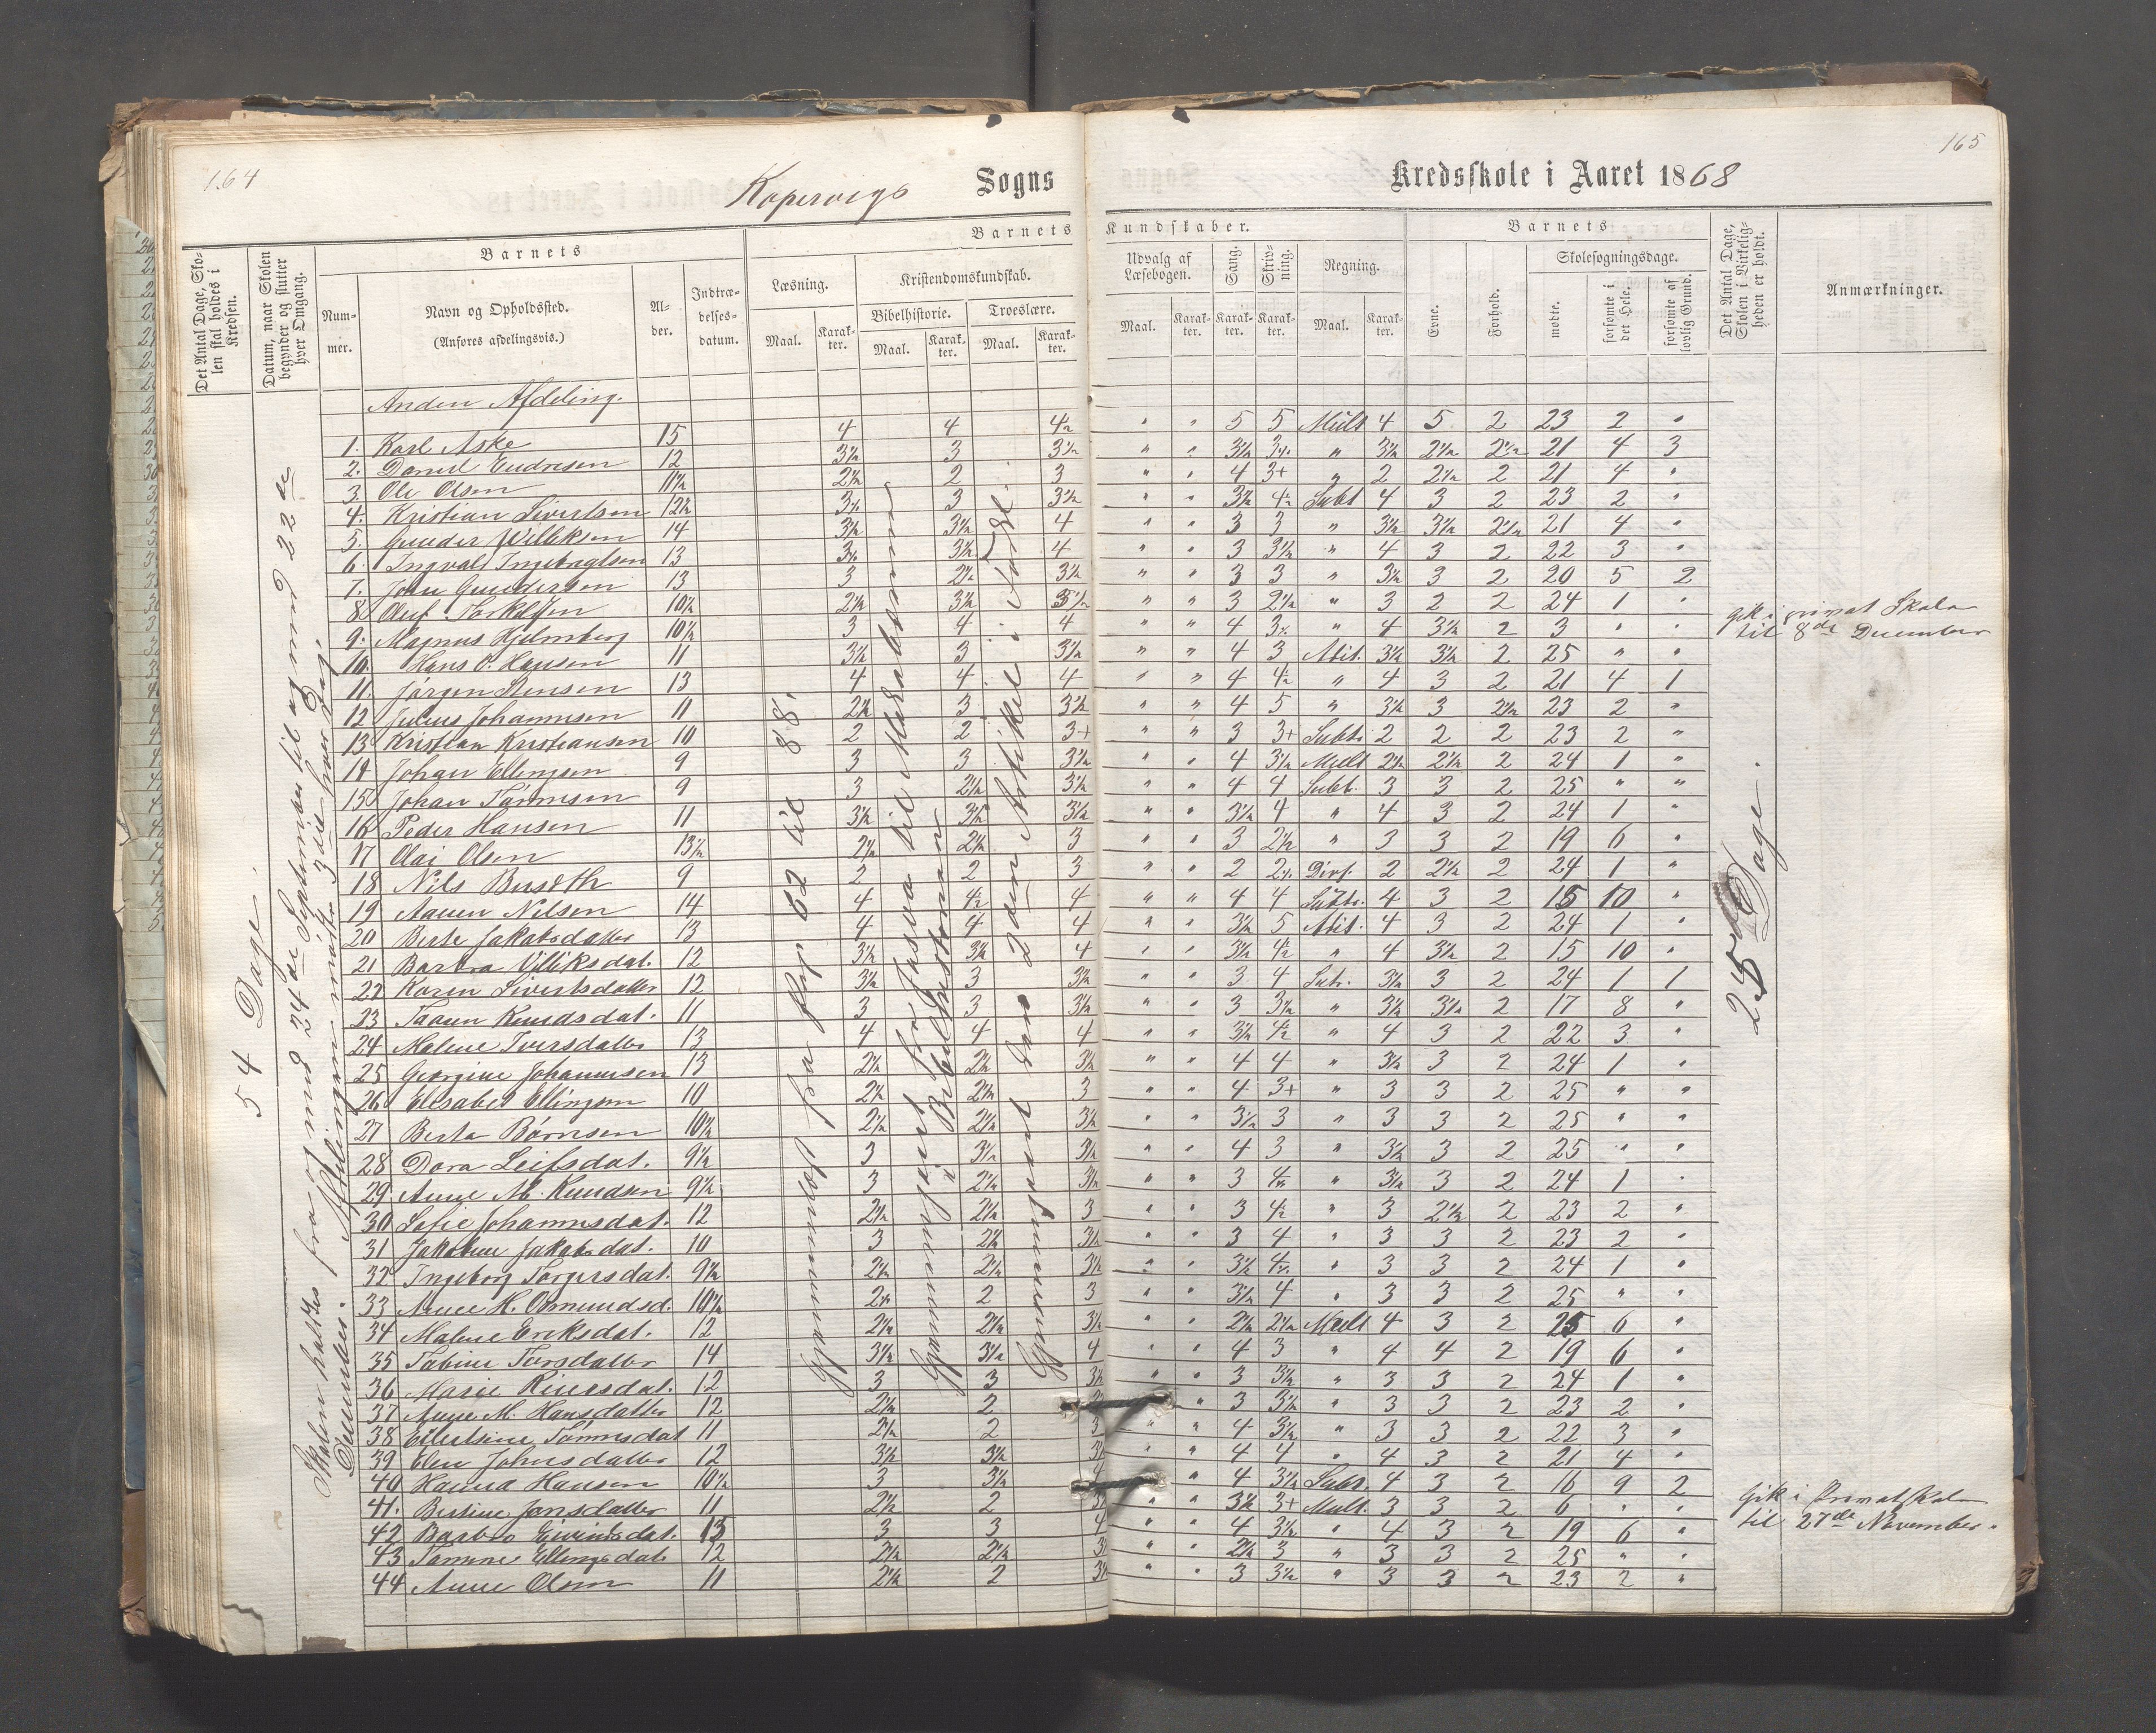 164
Kopervigs Sogns
Kredsskole i Aaret 1868
165
Det Antal Dage, Skolen skal holdes i Kredsen.
Datum, naar Skolen begynder og slutter hver Omgang.
Barnets
Nummer.
Navn og Opholdssted.
(Anføres afdelingsvis.)
Alder.
Indtrædelsesdatum.
Barnets
Læsning.
Kristendomskundskab.
Bibelhistorie.
Troeslære.
Maal. Karakter. Maal. Karakter. Maal. Karakter.
Kundskaber.
Udvalg af Læsebogen.
Sang.
Skrivning.
Regning.
Maal. Karakter. Karakter. Karakter. Maal. Karakter.
Barnets
Evne.
Forhold.
Skolesøgningsdage.
mødte.
forsømte i det Hele.
forsømte af lovlig Grund.
Det Antal Dage, Skolen i Virkeligheden er holdt.
Anmærkninger.
54 Dage.
Skolen holdtes fra og med 24de September til og med 22de December. Afdelingen mødte 3die hver Dag.
Anden Afdeling.
1. Karl Aske 15 4 4 " " 5 5 Mult 4 5 2 23 2 "
2. Daniel Endresen 12 3½ 3 3½ " " 3½ " 3½ 2½ 2½ 21 4 3
3. Ole Olsen 11½ 2½ 2 3 " " 4 3+ " 2 2½ 2 21 4 "
4. Kristian Sivertsen 12½ 3 3½ " " 3½ Subt 4 3 2 23 2 "
5. Gunder Williksen 14 3½ 3½ 4 " " 3 3 " 3½ 3½ 2½ 21 4 "
6. Ingvald Ingebrigtsen 13 3½ 4 " " 3 3½ " 4 3 2 22 3 "
7. John Gundersen 13 3 2½ 3½ " " 3 3 " 3½ 3 2 20 5 2
8. Oluf Torkelsen 10½ 2½ 3½ 3½ " " 3 2½ " 3 2 2 24 1 "
9. Magnus Hjelmberg 10½ 3 4 4 " " 4 " 4 3½ 2 3 " "
Gik i privat Skole
til 8de December
10. Hans O. Hansen 11 3½ 3 3½ " " 4 3 3½ 3½ 2 25 " "
11. Jørgen Stensen 13 4 4 4 " " 4 " 4 3 2 21 4 1
12 Julius Johannesen 11 2½ 3 3½ " " 4 5 " 3½ 3 2½ 23 2 "
13 Kristian Kristiansen 10 2 2 3+ " " 3 3+ Subtr. 2 2 2 23 2 "
14 Johan Ellingsen 9 3 3 3½ " " 4 3½ Mult 2½ 2½ 2 24 1 "
15 Johan Tønnesen 9 3 2½ 3½ " " 4 4 Subt. 3 3 2 25 " "
16 Peder Hansen 11 3½ 3½ 3½ " " 3½ 4 " 4 3 2 24 1 "
17 Olai Olsen 13½ 2½ 2½ 3 " " 3 2½ " 3 3 2 19 6 "
18 Nils 9 2 2 3 " " 2 Div. 2 2½ 2 24 1 "
19 Aanen Nilsen 14 4 4 " " 4 4 Subtr. 4 3 2 15 10 "
20 Berte Jakobsdatter 13 4 4 4 " " 3½ 5 4 3 2 24 1 "
21 Barbra Villiksdat. 12 3½ 3½ 4 " " 3½ " 4 3½ 2 15 10 "
22 Karen Sivertsdatter 12 3½ 3 3½ " " 3 4 Subt. 3½ 3 2 24 1 1
23 Taaren Knudsdat. 11 3 3 3½ " " 3 3½ " 3½ 3½ 2 17 8 "
24 Malene Iversdatter 13 4 4 4 " " 3½ " 4 3 2 22 3 "
25 Georgine Johannesen 13 2½ 2½ 3½ " " 4 4 " 3½ 3 2 24 1 "
26 Elisabet Ellingsen 10 2½ 2½ 3 " " 4 3+ " 3 3 2 25 " "
27 Berta Børnsen 10½ 2½ 2½ 3½ " " 3½ 3 " 3 3 2 25 " "
28 Dora Leifsdat. 9½ 3 3½ 3½ " " 4 3 " 3½ 3 2 25 " "
29 Anne M. Knudsen 9½ 3 2½ 3½ " " 3 " 3½ 3 2 24 1 "
30 Sofie Johannesdat. 12 2½ 2½ 3 " " 3 " 3 2½ 2 23 2 "
31 Jakobine Jakobsdat. 10 3 2½ 3½ " " 3 4 " 3 3 2 23 2 "
32 Ingeborg Torgersdat. 9½ 2½ 2½ 3½ " " 3½ " 3 3 2 24 1 "
33 Anne H. Osmundsd. 10½ 2 3 " " 3½ 4 " 3 3 2 25 " "
34 Malene Eriksdat. 12 2½ 2½ 3½ " " 2½ 2½ Mult 4 3 2 6 "
35 Tabine Torsdatter 14 3½ 3½ 4 " " 4 3 " 4 4 2 19 6 "
36 Marie 12 3 3 3½ " " 3 3½ " 3 3 2 24 1 "
37 Anne M. Hansdatter 12 2½ 2 " 3 3½ " 3 3 2 23 2 "
38 Eilertsine Tønnesdat 11 2½ 2 3 " " 4 3½ " 3 3 2 22 3 "
39 Elen Johnsdatter 12 3½ 3½ " " 4 4 " 4 3 2 21 4 "
40 Hanna Hansen 10½ 3 3½ 4 " 4 3½ Subt. 4 3 2 16 9 2
41. Bertine Jansdatter 11 2½ 2 " " 3½ 3+ Mult. 3 3 2 6 " "
Gik i Privatskole
til 27de November.
42 Barbro Eivindsdat. 13 3 3 4 " " 4 3½ " 4 3 2 19 6 "
43 Tomine Ellingsdat. 12 2½ 2½ " " 2½ 3 " 3 3 2 25 " "
44 Anne Olsen 11 2½ 2 3½ " " 3 3½ " 3 3 2 23 2 "
Gjennemgaaet fra 62 til 88.
Gjennemgaaet fra Josva til Makkabæerne i Bibelhistorien
Gjennemgaaet den 2den Artikel i
25 Dage.